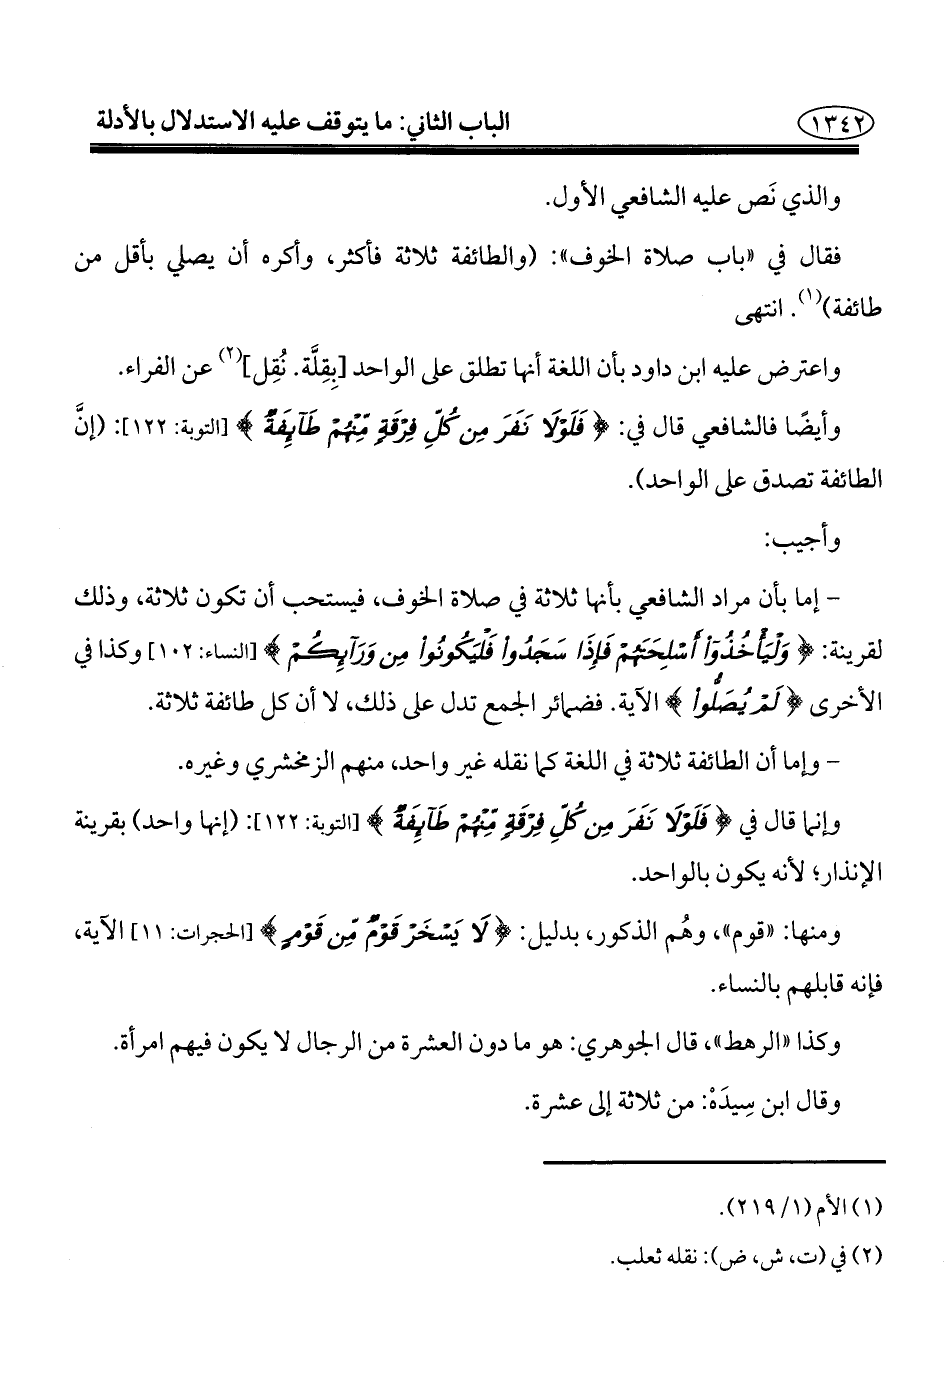 ١٣٤٢ الباب الثاني: ما يتوقف عليه الاستدلال بالأدلة
والذي نَص عليه الشافعي الأول.
فقال في «باب صلاة الخوف»: (والطائفة ثلاثة فأكثر، وأكره أن يصلي بأقل من
طائفة)(١). انتهى
واعترض عليه ابن داود بأن اللغة أنها تطلق على الواحد [بِقِلَّة. نُقِل](٢) عن الفراء.
وأيضًا فالشافعي قال في: ﴿ فَلَوْلَا نَفَرَ مِن كُلِّ فِرْقَةٍ مِّنْهُمْ طَآئِفَةٌ ﴾ [التوبة: ١٢٢]: (إنَّ
الطائفة تصدق على الواحد).
وأجيب:
– إما بأن مراد الشافعي بأنها ثلاثة في صلاة الخوف، فيستحب أن تكون ثلاثة، وذلك
لقرينة: ﴿ وَلْيَأْخُذُوٓا۟ أَسْلِحَتَهُمْ فَإِذَا سَجَدُوا۟ فَلْيَكُونُوا۟ مِن وَرَآئِكُمْ ﴾ [النساء: ١٠٢] وكذا في
الأخرى ﴿ لَمْ يُصَلُّوا۟ ﴾ الآية. فضمائر الجمع تدل على ذلك، لا أن كل طائفة ثلاثة.
– وإما أن الطائفة ثلاثة في اللغة كما نقله غير واحد، منهم الزمخشري وغيره.
وإنما قال في ﴿ فَلَوْلَا نَفَرَ مِن كُلِّ فِرْقَةٍ مِّنْهُمْ طَآئِفَةٌ ﴾ [التوبة: ١٢٢]: (إنها واحد) بقرينة
الإنذار؛ لأنه يكون بالواحد.
ومنها: «قوم»، وهُم الذكور، بدليل: ﴿ لَا يَسْخَرْ قَوْمٌ مِّن قَوْمٍ ﴾ [الحجرات: ١١] الآية،
فإنه قابلهم بالنساء.
وكذا «الرهط»، قال الجوهري: هو ما دون العشرة من الرجال لا يكون فيهم امرأة.
وقال ابن سِيدَهْ: من ثلاثة إلى عشرة.
(١) الأم (١/ ٢١٩).
(٢) في (ت، ش، ض): نقله ثعلب.